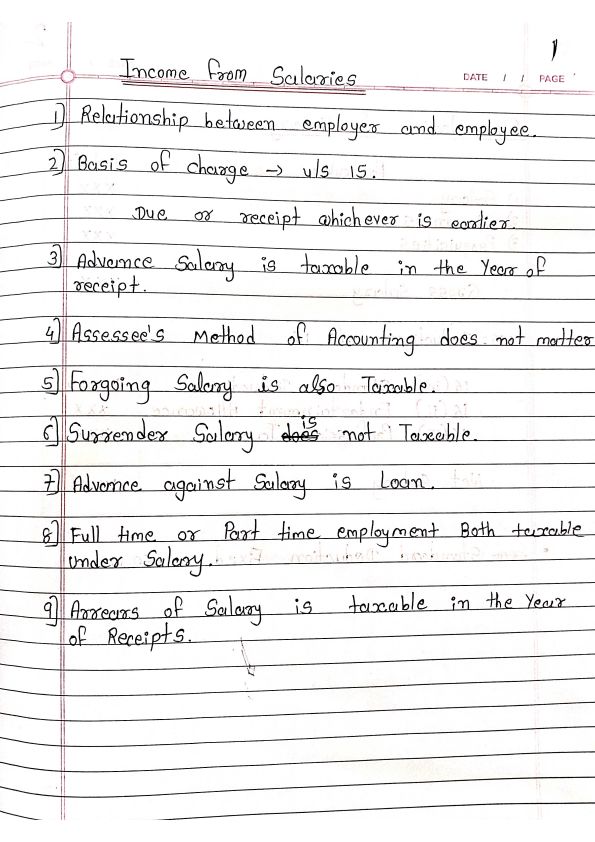 1
Income from Salaries
DATE / / PAGE
1) Relationship between employer and employee.
2) Basis of charge → u/s 15.
Due or receipt whichever is earlier.
3) Advance Salary is taxable in the Year of
receipt.
4) Assessee's Method of Accounting does not matter
5) Forgoing Salary is also Taxable.
is
6) Surrender Salary does not Taxable.
7) Advance against Salary is Loan.
8) Full time or Part time employment Both taxable
under Salary.
9) Arrears of Salary is taxable in the Year
of Receipts.